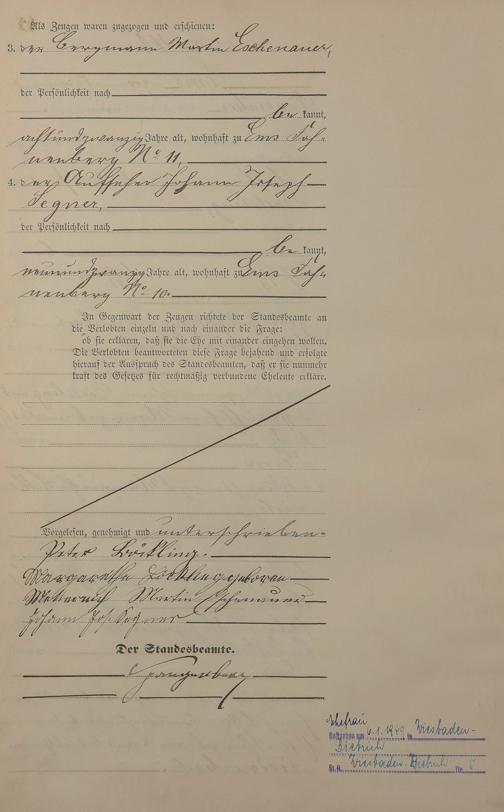 Als Zeugen waren zugezogen und erschienen:
3. der Bergmann Martin Eschenauer,
der Persönlichkeit nach
be kannt,
achtundzwanzig Jahre alt, wohnhaft zu Ems Fah-
nenberg No 11,
4. der Aufseher Johann Joseph
Segner,
der Persönlichkeit nach
be kannt,
neunundzwanzig Jahre alt, wohnhaft zu Ems Fah-
nenberg No 10.
In Gegenwart der Zeugen richtete der Standesbeamte an
die Verlobten einzeln und nach einander die Frage:
ob sie erklären, daß sie die Ehe mit einander eingehen wollen.
Die Verlobten beantworteten diese Frage bejahend und erfolgte
hierauf der Ausspruch des Standesbeamten, daß er sie nunmehr
kraft des Gesetzes für rechtmäßig verbundene Eheleute erkläre.
Vorgelesen, genehmigt und unterschrieben.
Peter Böckling.
Margarethe geboren
Metternich Martin Eschenauer
Johann Jos. Segner
Der Standesbeamte.
Spangenberg
Ehefrau
Gestorben am 6.1.1949 in Wiesbaden-
Biebrich
St.A. Wiesbaden-Biebrich Nr. 8